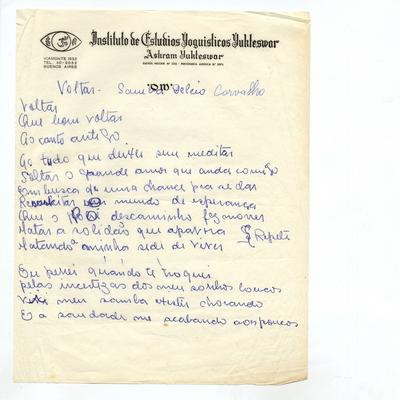 Instituto de Estudios Yoguisticos Yukteswar
Ashram Yukteswar
VIAMONTE 1892
BUENOS AIRES
Voltar - Samba Delcio Carvalho
Voltar
Que bom voltar
Ao canto antigo
Ao tudo que deixei sem meditar
Soltar o grande amor que anda comigo
Em busca de uma chance pra se dar
mundo de esperança
Que o descaminho fez morrer
Matar a solidão que apavora
Matando a minha sede de viver
Repete
Eu pequei quando te troquei
pelas incertezas dos meus sonhos loucos
meu samba chorando
E a saudade me acabando aos poucos